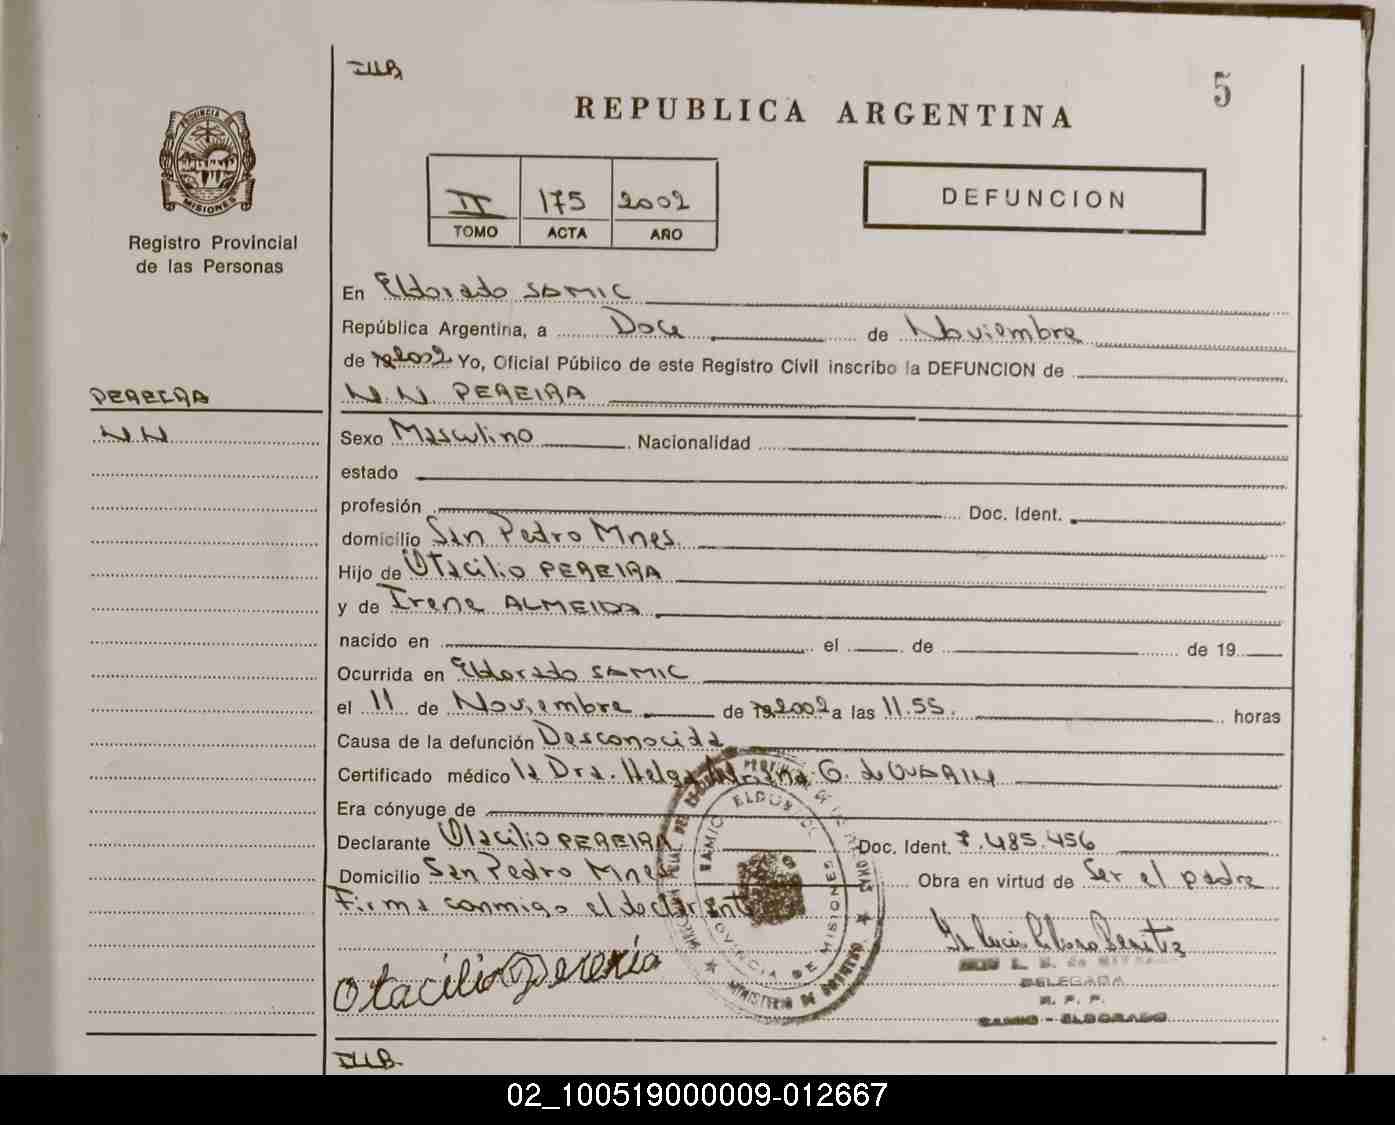 IUB
5
REPUBLICA ARGENTINA
PROVINCIA
MISIONES
Registro Provincial
de las Personas
II 175 2002
TOMO ACTA AÑO
DEFUNCION
En Eldorado SAMIC
República Argentina, a Doce de Noviembre
de 2002 Yo, Oficial Público de este Registro Civil inscribo la DEFUNCION de
PEREIRA
N.N. PEREIRA
NN
Sexo Masculino Nacionalidad
estado
profesión Doc. Ident.
domicilio San Pedro Mnes.
Hijo de Otacilio PEREIRA
y de Irene ALMEIDA
nacido en el de de 19
Ocurrida en Eldorado SAMIC
el 11 de Noviembre de 2002 a las 11.55. horas
Causa de la defunción Desconocida
Certificado médico la Dra. Helga G. de
Era cónyuge de
Declarante Otacilio PEREIRA Doc. Ident. 7.485.456
Domicilio San Pedro Mnes Obra en virtud de Ser el padre
Firma conmigo el declarante
Otacilio Pereria
SAMIC ELDORADO
PROVINCIA DE MISIONES
MINISTERIO DE GOBIERNO
DELEGADA
R. P. P.
SAMIC - ELDORADO
IUB.
02_100519000009-012667